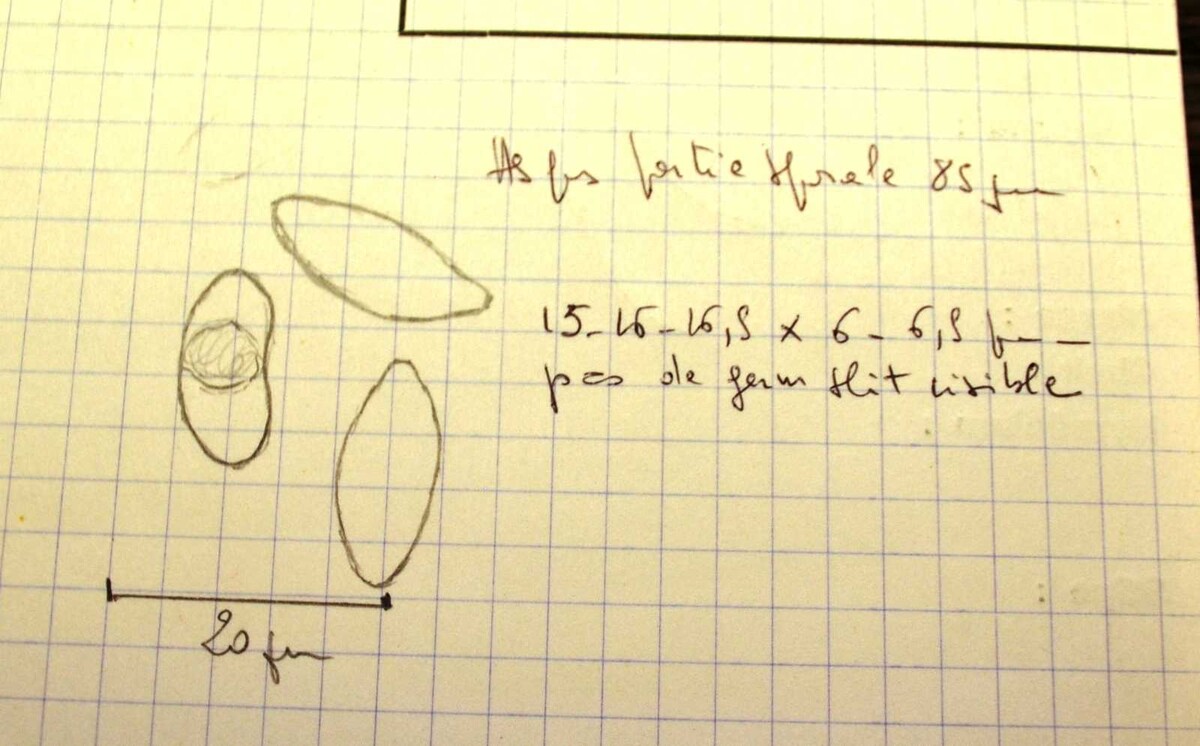 Asques partie sporale 85 µm
15-16-16,5 x 6-6,5 µm
pas de germ slit visible
20 µm